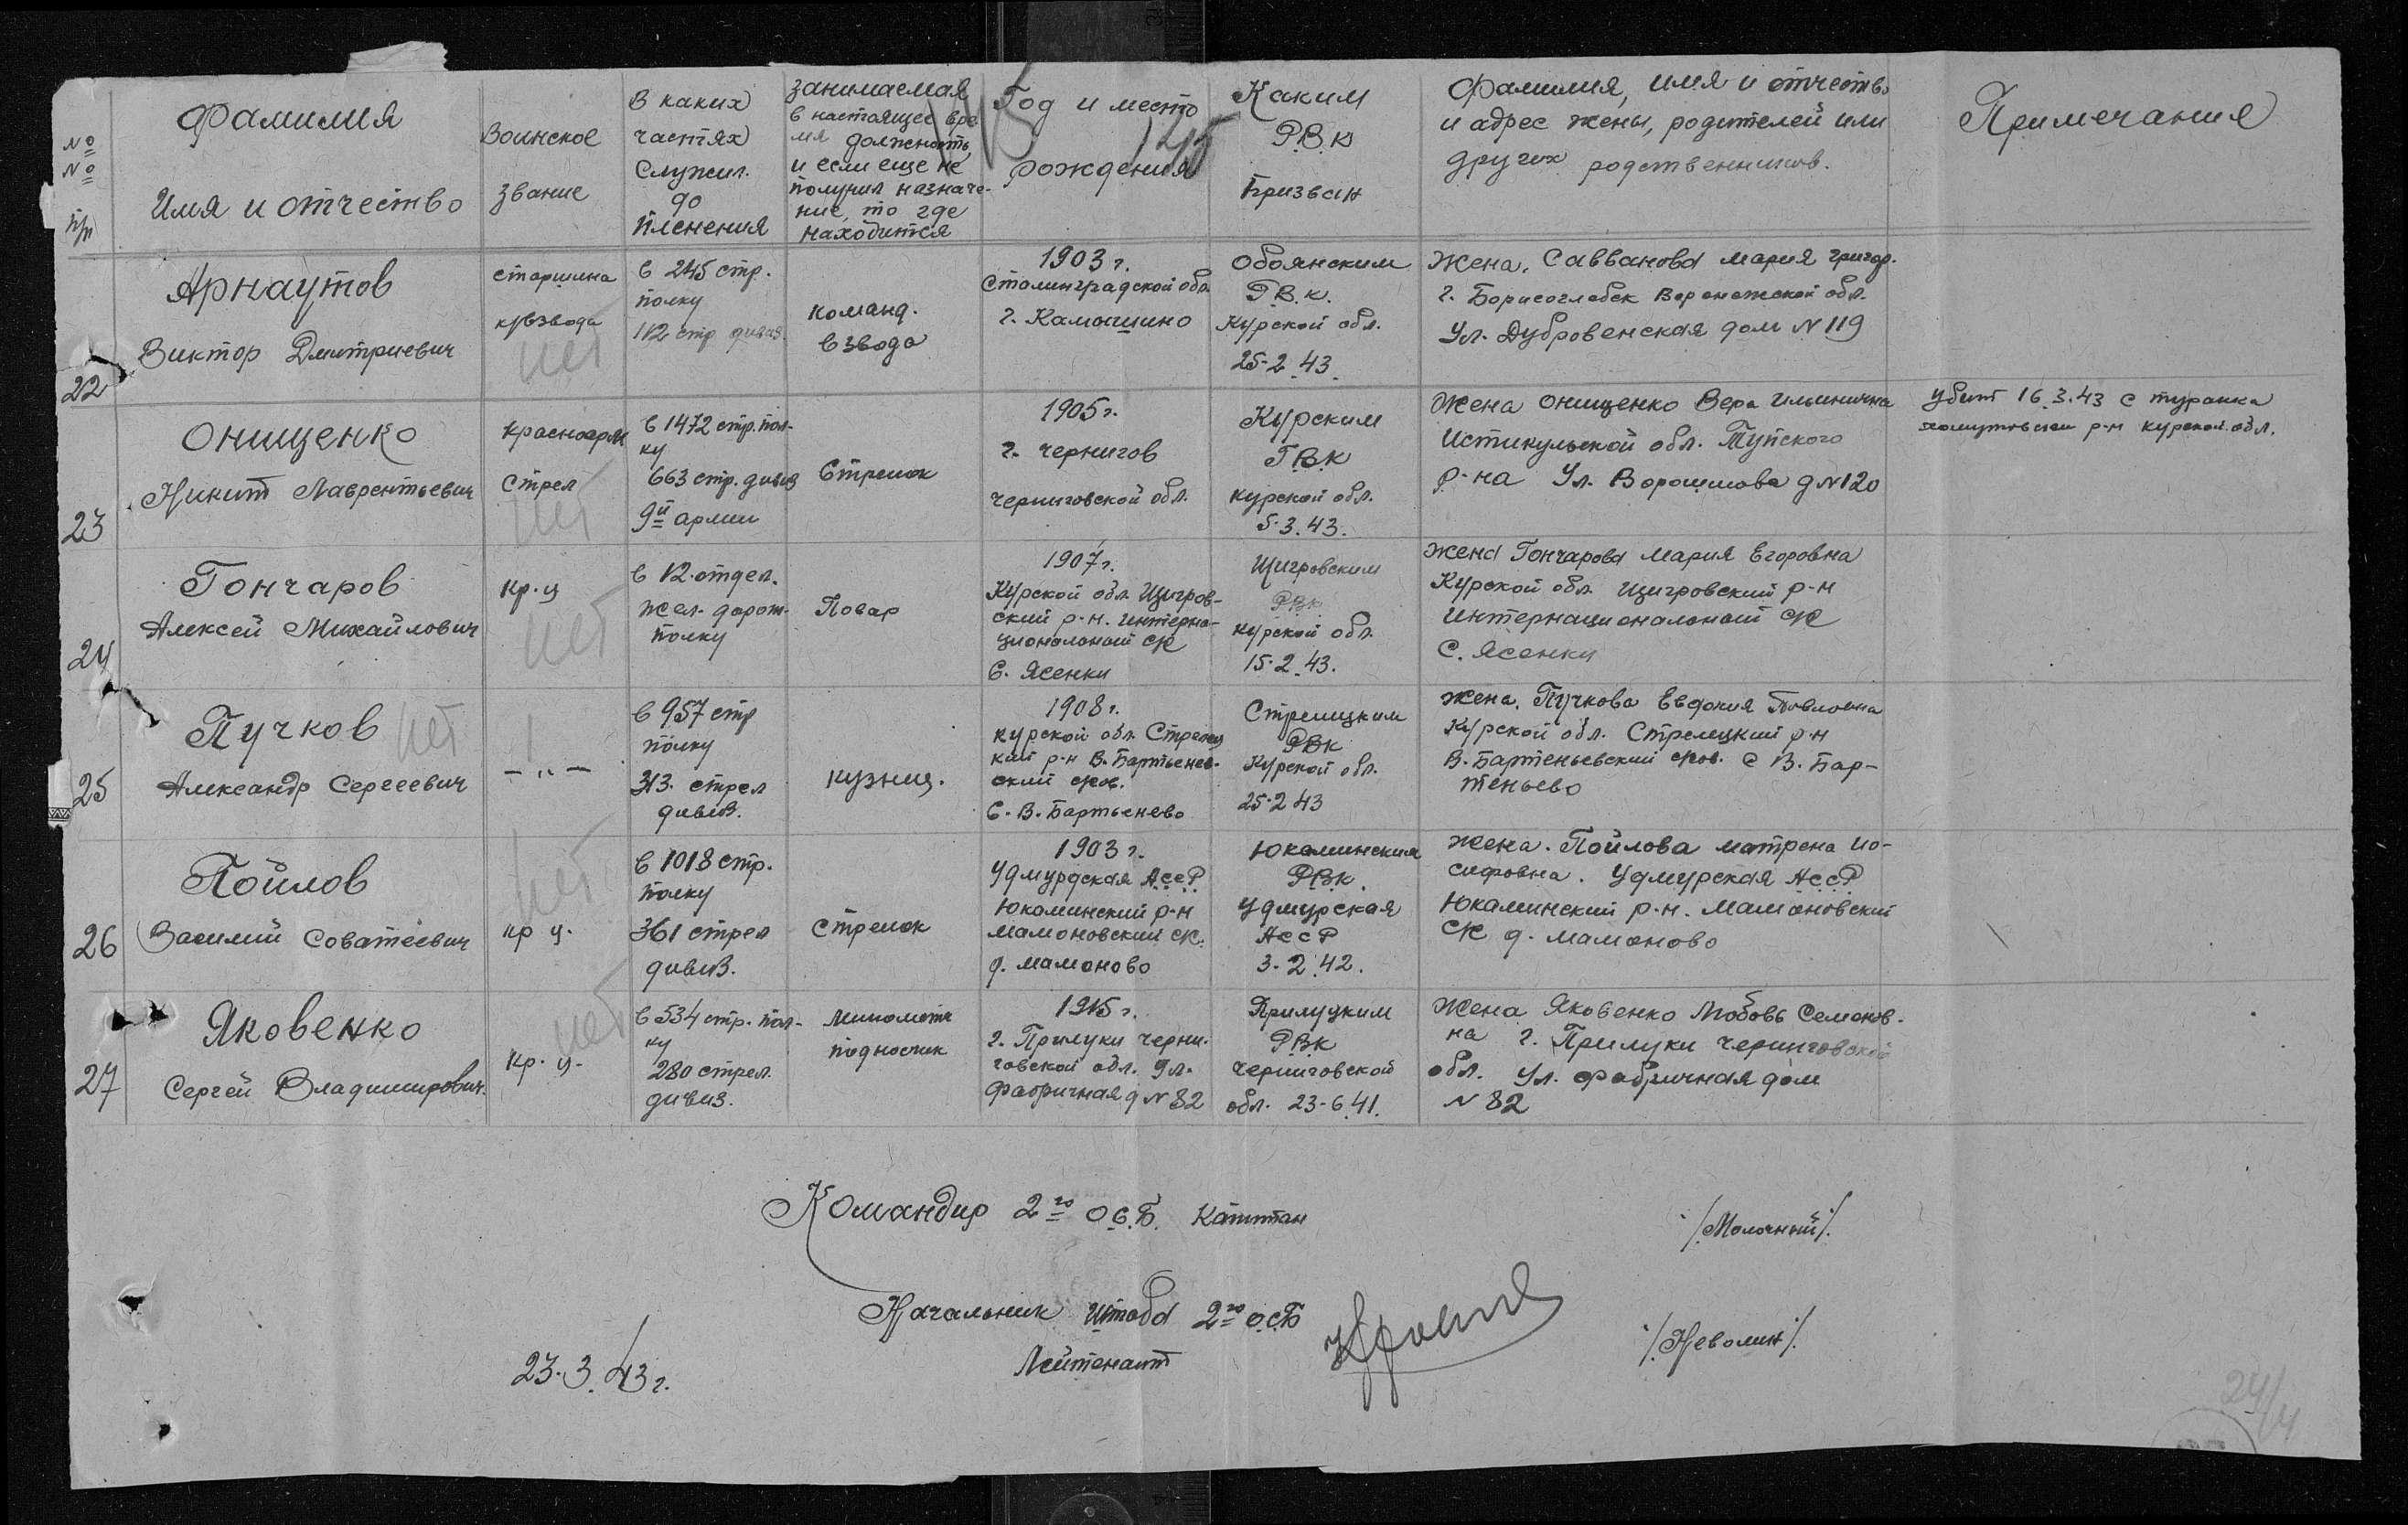 №
№
п/п
Фамилия
Имя и отчество
Воинское
звание
В каких
частях
служил
до
пленения
занимаемая
в настоящее вре
мя должность
и если еще не
получил назначе-
ние, то где
находится
Год и место
рождения
145
Каким
Р.В.К
призван
Фамилия, имя и отчество
и адрес жены, родителей или
других родственников.
Примечания
22
Арнаутов
Виктор Дмитриевич
старшина
к/взвода
нет
в 245 стр.
полку
112 стр дивиз.
команд.
взвода
1903 г.
Сталинградской обл.
г. Камышино
Обоянским
Р.В.К.
Курской обл.
25.2.43.
Жена. Савванова Мария Григор.
г. Борисоглебск Воронежской обл.
Ул. Дубровенская дом №119
23
Онищенко
Никит Лаврентьевич
красноарм
стрел
нет
в 1472 стр. пол-
ку
663 стр. дивиз
9й армии
Стрелок
1905 г.
г. Чернигов
Черниговской обл.
Курским
Г.В.К
Курской обл.
5.3.43.
Жена Онищенко Вера Ильинична
Истикульской обл. Тупского
р-на Ул. Ворошилова д №120
Убит 16.3.43 с Туранка
хомутовский р-н Курской обл.
24
Гончаров
Алексей Михайлович
Кр-ц
нет
в 12 отдел.
жел-дорож.
полку
Повар
1907 г.
Курской обл. Щигров-
ский р-н. Интерна-
циональный с/с
с. Ясенки
Щигровским
РВК
Курской обл.
15.2.43.
Жена Гончарова Мария Егоровна
Курской обл. Щигровский р-н
Интернациональный с/с
с. Ясенки
25
Пучков нет
Александр Сергеевич
— " —
в 957 стр
полку
313. стрел
дивиз.
кузнец.
1908 г.
Курской обл. Стрелец
кий р-н В. Бартенев-
ский с/сов.
с. В. Бартьенево
Стрелицким
РВК
Курской обл.
25.2 43
Жена. Пучкова Евдокия Павловна
Курской обл. Стрелецкий р-н
В. Бартеньевский с/сов. с В. Бар-
теньево
26
Пойлов
Василий Соватеевич
нет
кр ц.
в 1018 стр.
полку
361 стрел
дивиз.
стрелок
1903 г.
Удмурдская АССР
Юкаминский р-н
Мамоновский с/с.
д. Мамоново
Юкаминским
РВК.
Удмурская
АССР
3.2.42.
Жена. Пойлова Матрена Ио-
сифовна. Удмурская АССР
Юкаминский р-н. Мамоновский
с/с д. Мамоново
27
Яковенко
Сергей Владимирович.
нет
Кр. ц.
в 534 стр. пол-
ку
280 стрел.
дивиз.
Минометн
подносчик
1915 г.
г. Прилуки Черни-
говской обл. Ул.
Фабричная д №82
Прилуцким
РВК
Черниговской
обл. 23.6.41.
Жена Яковенко Любовь Семенов-
на г. Прилуки Черниговской
обл. Ул. Фабричная дом
№ 82
Командир 2го О.С.Б. Капитан
/Молочный/.
Начальник Штаба 2го ОСБ
Лейтенант
/Неволин/.
23.3.43 г.
24/4